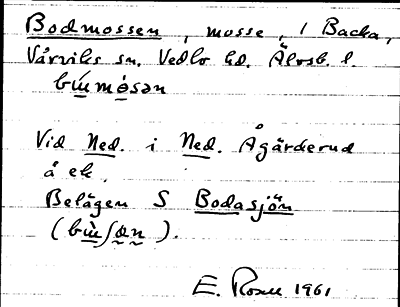 Bodmossen, mosse, i Backa,
Vårviks sn. Vedbo hd. Älvsb. l.
bẁmósən
Vid Ned. i Ned. Ågärderud
å ek.
Belägen S Bodasjön
(bẁʃøn).
E. 1961